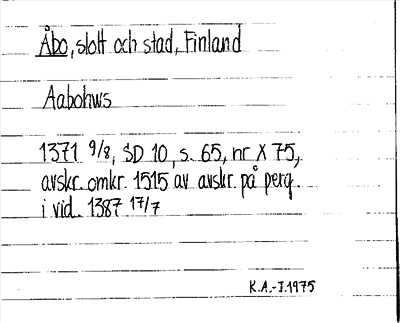 Åbo, slott och stad, Finland
Aabohws
1371 9/8, SD 10, s. 65, nr X 75,
avskr. omkr. 1515 av avskr. på perg.
i vid. 1387 17/7
K.A.-J.1975